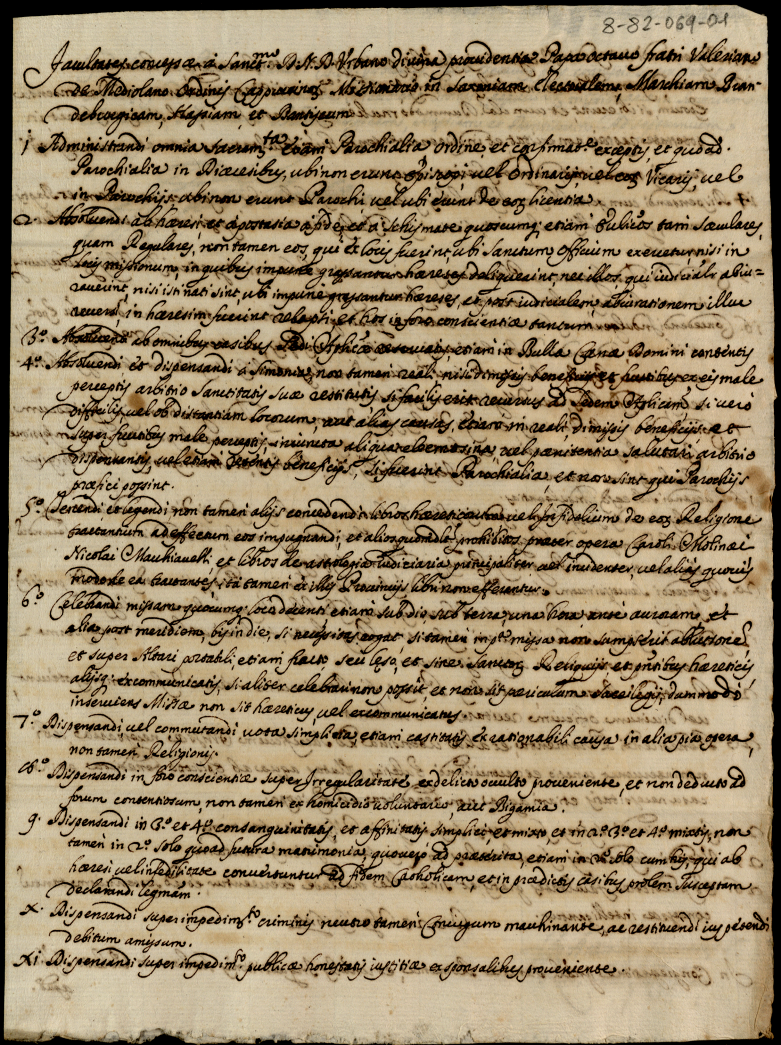 8-82-069-01
Facultates concessæ a Sanct.mo D. N. D. Urbano divina providentia Papa octavo fratri Valeriano
de Mediolano Ordinis Cappuccinor. Missionario in Saxoniam Electoralem, Marchiam Bran-
deburgicam, Hassiam, et
i Administrandi omnia Sacram.ta etiam Parochialia ordine, et confirmat.e exceptis, et quoad
Parochialia in Diœcesibus, ubi non erunt Episcopi vel Ordinarij, vel eor. Vicarij, vel
in Parochijs, ubi non erunt Parochi vel ubi erunt de eor. licentia.
2. Absolvendi ab hæresi et apostasia a fide, et a schismate quoscumq; etiam tam Sæculares,
quam Regulares, non tamen eos, qui ex locis fuerint, ubi Sanctum Officium exercetur nisi in
locis missionum, in quibus impune grassantur hæreses deliquerint, nec illos, qui iudicialr abiu=
raverint, nisi isti nati sint, ubi impune grassantur hæreses, et post iudicialem abiurationem illuc
reversi, in hæresim fuerint relapsi et hos in foro conscientiæ tantum
3.o Absolvendi ab omnibus casibus Sedi Aplicæ reservatis etiam in Bulla Cœnæ Domini contentis
4.o Absolvendi et dispensandi a Simonia, non tamen reali nisi dimissis beneficijs et fructibus ex eis male
perceptis arbitrio Sanctitatis suæ restitutis si facilis erit recursus ad Sedem Aplicam, si vero
difficilis vel ob distantiam locorum, aut alias causas, etiam in reali, dimissis beneficijs et
super fructibus male perceptis iniuncta aliqua eleemosina, vel pænitentia salutari, arbitrio
dispensantis, vel etiam retentis beneficijs, si fuerint Parochialia et non sint qui Parochijs
præfici possint.
5.o Tenendi et legendi non tamen alijs concedendi libros hæreticorum vel Infidelium de eor. Religione
tractantium ad effectum eos impugnandi, et alios quomodolt prohibitos, præter opera Caroli Molinæi
Nicolai Machiavelli, et libros de astrologia iudiciaria principaliter vel incidenter, vel alias quovis
modo de ea tractantes, ita tamen ex illis Provincijs libri non efferantur.
6.o Celebrandi missam quocumq; loco decenti etiam sub dio, sub terra, una hora ante auroram, et
alia post meridiem, bis in die, si necessitas cogat si tamen in p.a missa non sumpserit ablutione,
et super Altari portatili, etiam fracto, seu læso, et sine Sanctor. Reliquijs et p.ntibus hæreticis
alijsq. excommunicatis, si aliter celebrari non possit et non sit periculum sacrilegij, dummodo
inserviens Missæ non sit hæreticus, vel excommunicatus.
7.o Dispensandi, vel commutandi vota simplicia, etiam castitatis ex rationabili causa in alia pia opera,
non tamen Religionis.
8.o Dispensandi in foro conscientiæ super Irregularitate ex delicto occulto proveniente, et non deducto ad
forum contentiosum, non tamen ex homicidio voluntario, aut Bigamia.
9. Dispensandi in 3.o et 4.o consanguinitatis, et affinitatis simplici, et mixto, et in 2.o 3.o et 4.o mixtis, non
tamen in 2.o solo quoad futura matrimonia, quo vero ad præterita, etiam in 2.o solo cum his, qui ab
hæresi vel infidelitate convertuntur ad fidem Catholicam, et in prædictis casibus prolem susceptam
declarandi legmam.
X. Dispensandi super impedim.to criminis neutro tamen Coniugum machinante, ac restituendi ius petendi
debitum amissum.
XI. Dispensandi super impedim.to publicæ honestatis iustitiæ ex sponsalibus proveniente.